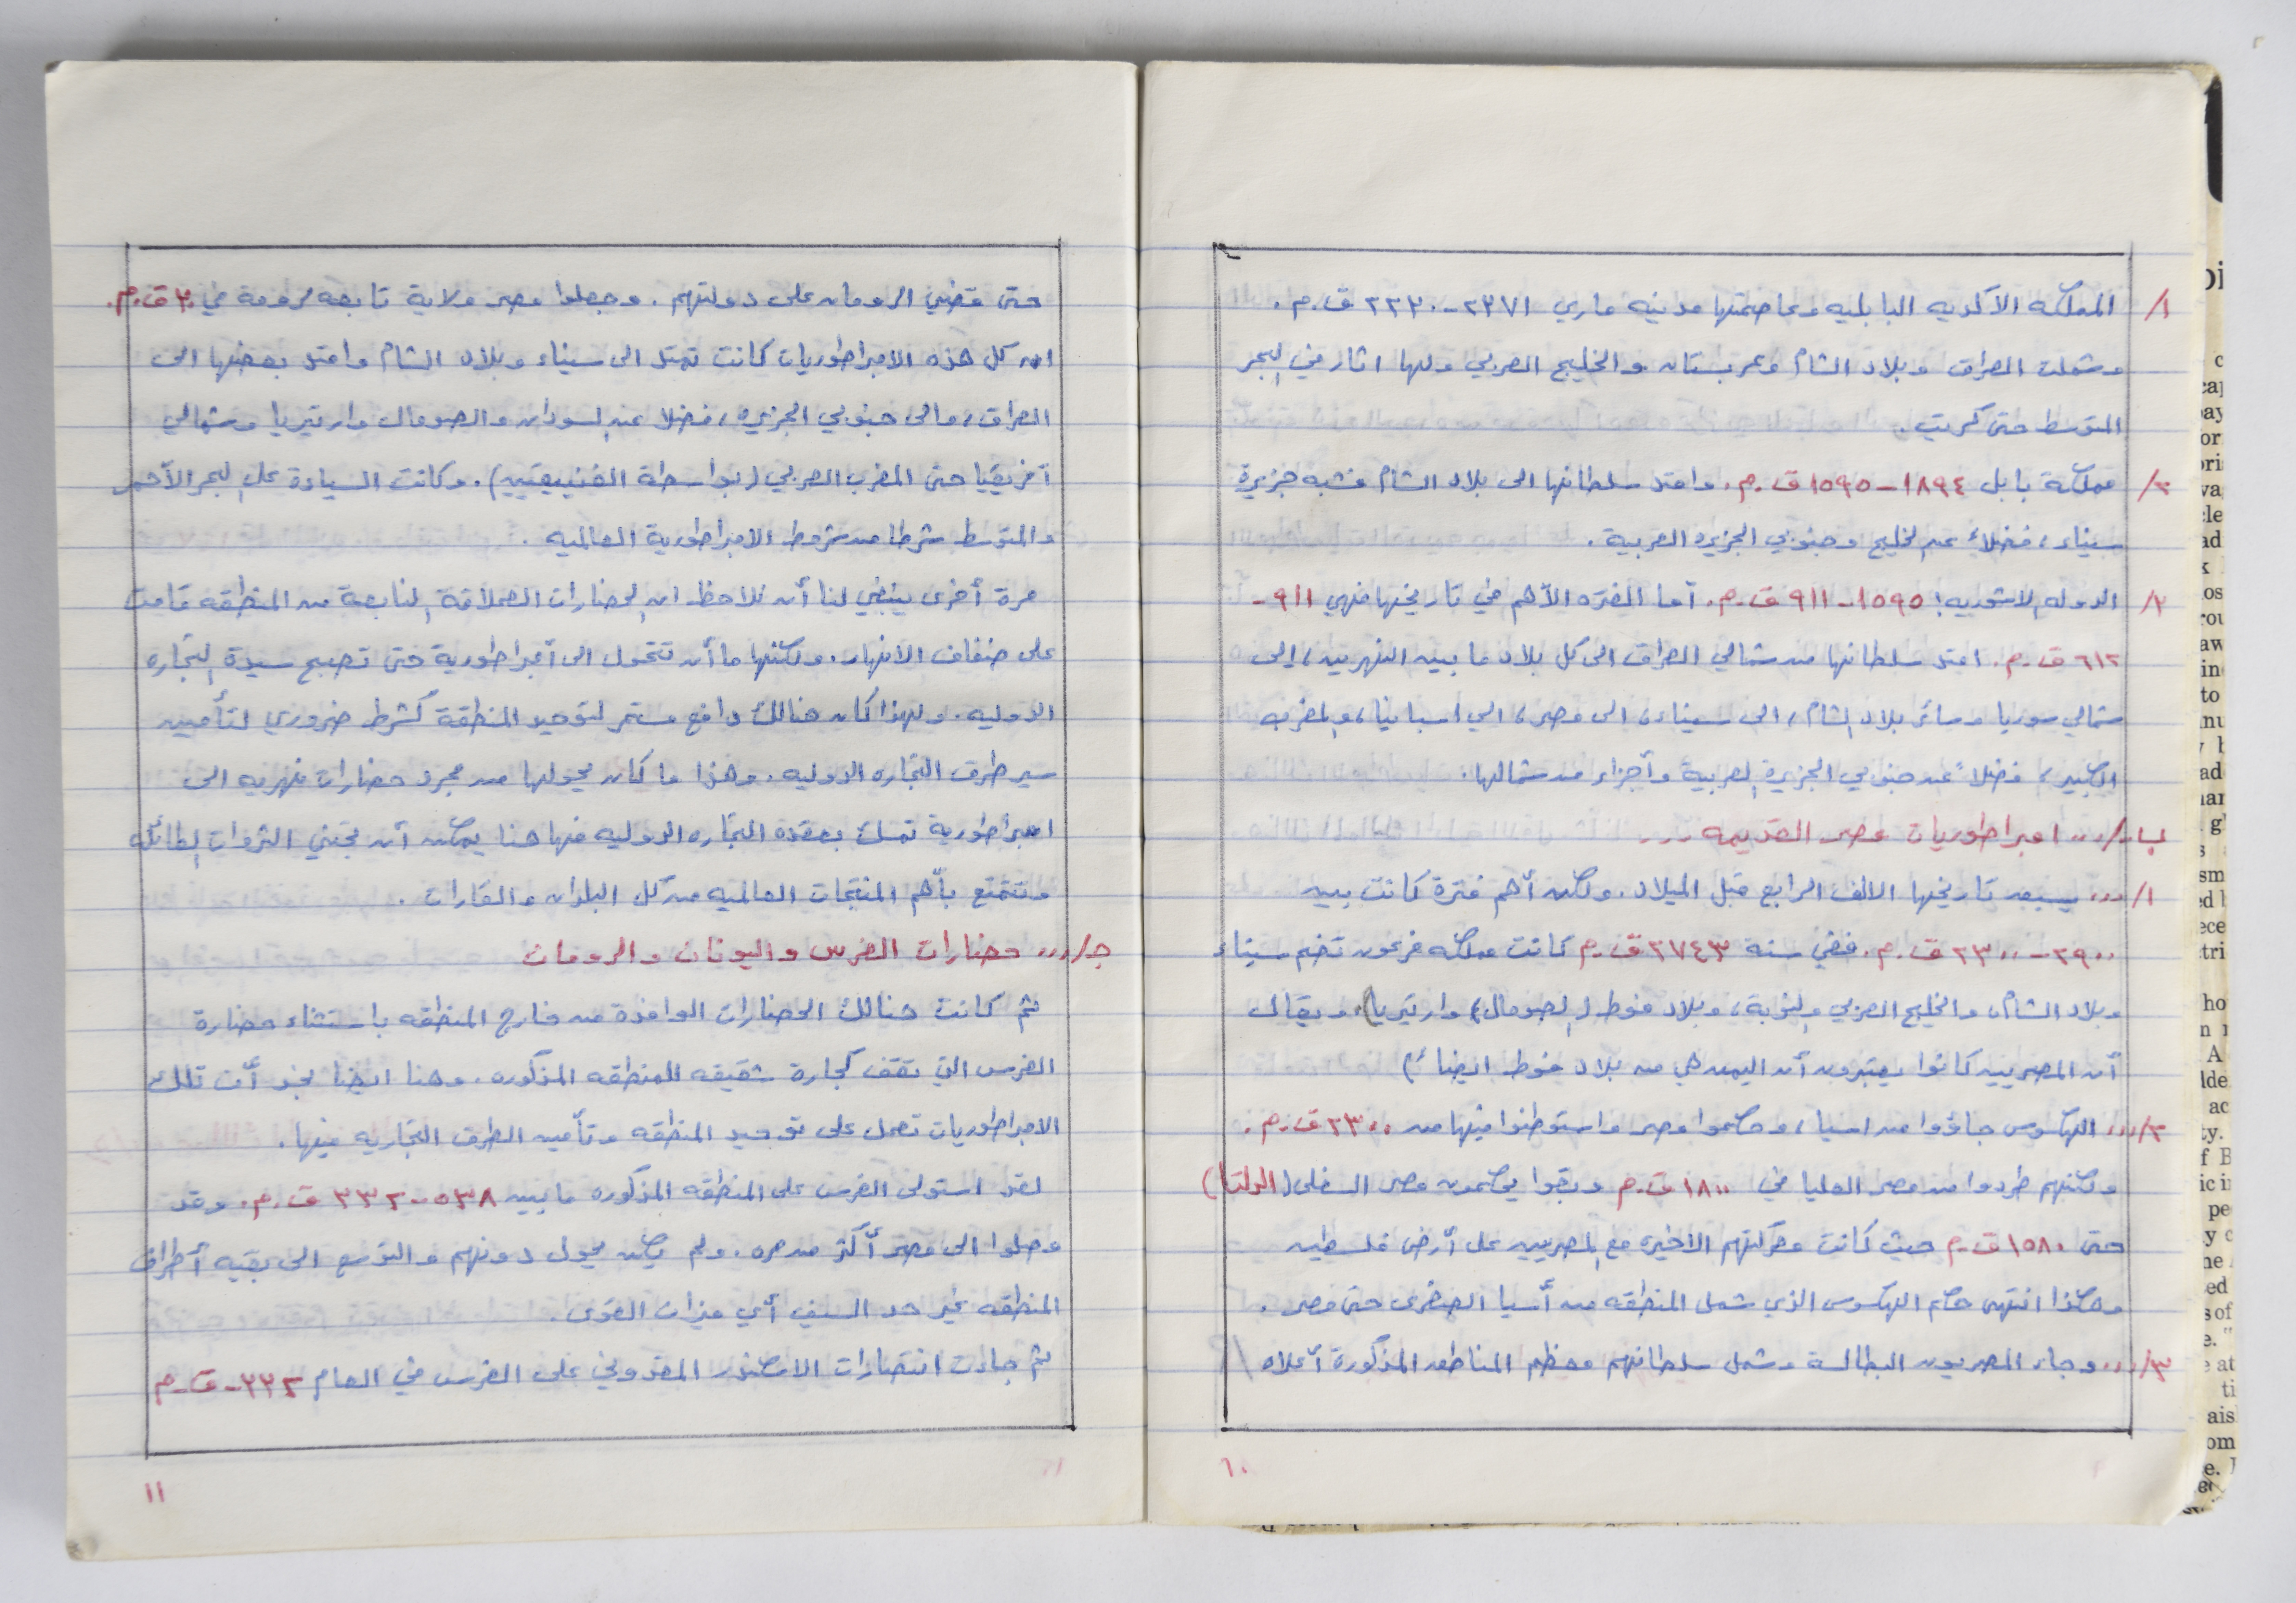 ١/ المملكه الاكديه البابليه وعاصمتها مدينه ماري ٢٣٧١-٢٢٣٠ ق.م.
وشملت العراق وبلاد الشام وعربستان والخليج العربي ولها اثار في البحر
المتوسط حتى كريت.
٢/ مملكة بابل ١٨٩٤-١٥٩٥ ق.م. وامتد سلطانها الى بلاد الشام فشبه جزيرة
سيناء، فضلاً عن الخليج وجنوبي الجزيره العربية.
٣/ الدوله الاشوريه: ١٥٩٥-٩١١ ق.م. أما الفتره الأهم في تاريخها فهي ٩١١-
٦١٢ ق.م. امتد سلطانها من شمالي العراق الى كل بلاد ما بين النهرين، الى
شمالي سوريا وسائر بلاد الشام، الى سيناء، الى مصر، الى اسبانيا، والمغرب
الكبير، فضلاً عن جنوبي الجزيرة العربية وأجزاء من شمالها.
ب/... امبراطوريات مصر القديمه ...
١/... يبعد تاريخها الالف الرابع قبل الميلاد. ولكن أهم فترة كانت بين
٢٩٠٠-٢٣٠٠ ق.م. ففي سنة ٢٧٤٣ ق.م كانت مملكه فرعون تضم سيناء
وبلاد الشام، والخليج العربي والنوبة، وبلاد فوط (الصومال) وارتيريا، ويقال
أن المصريين كانوا يعتبرون أن اليمن هي من بلاد فوط ايضاً)
٢/... الهكسوس جاؤوا من اسيا، وحكموا مصر واستوطنوا فيها من ٢٣٠٠ ق.م.
ولكنهم طردوا من مصر العليا في ١٨٠٠ ق.م وبقوا يحكمون مصر السفلى (الدلتا)
حتى ١٥٨٠ ق.م حيث كانت معركتهم الاخيره مع المصريين على أرض فلسطين
وهكذا انتهى حكم الهكسوس الذي شمل المنطقه من أسيا الصغرى حتى مصر.
٣/... وجاء المصريون البطالسة وشمل سلطانهم معظم المناطق المذكورة أعلاه
١٠
حتى قضي الرومان على دولتهم. وجعلوا مصر ولاية تابعه لرومة في ٣٠ ق.م.
ان كل هذه الامبراطوريات كانت تمتد الى سيناء وبلاد الشام وامتد بعضها الى
العراق، والى جنوبي الجزيره، فضلا عن السودان والصومال وارتيريا وشمالي
أفريقيا حتى المغرب العربي (بواسطة الفنييقيين). وكانت السيادة على البحر الأحمر
والمتوسط شرطا من شروط الامبراطورية العالميه.
مرة أخرى ينبغي لنا أن نلاحظ ان الحضارات العملاقة النابعة من المنطقه قامت
على ضفاف الانهار. ولكنها ما أن تتحول الى أمبراطورية حتى تصبح سيدة التجاره
الدوليه. ولهذا كان هنالك دافع مستمر لتوحيد المنطقة كشرط ضروري لتأمين
سير طرق التجاره الدوليه. وهذا ما كان يحولها من مجرد حضارات نهريه الى
امبراطورية تمسك بعقده التجاره الدوليه فها هنا يمكن أن تجتني الثروات الطائله
وتتمتع بأهم المنتجات العالميه من كل البلدان والقارات.
ج/... حضارات الفرس واليونان والرومان
ثم كانت هنالك الحضارات الوافدة من خارج المنطقه باستثناء حضارة
الفرس التي تقف كجارة شقيقه للمنطقه المذكوره. وهنا ايضا نجد أن تلك
الامبراطوريات تعمل على توحيد المنطقه وتأمين الطرق التجاريه فيها.
لقد استولى الفرس على المنطقه المذكوره ما بين ٥٣٨-٣٣٢ ق.م. وقد
وصلوا الى مصر أكثر من مره. ولم يكن يحول دونهم والتوسع الى بقيه أطراف
المنطقه غير حد السيف أي ميزان القوى.
ثم جاءت انتصارات الاسكندر المقدوني على الفرس في العام ٣٣٢ ق.م
١١